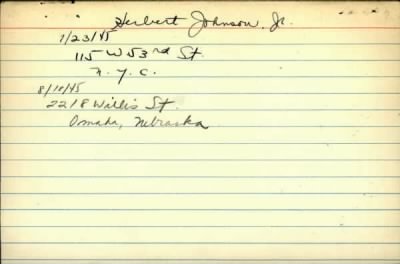 Herbert Johnson, Jr.
7/23/45
115 W 53rd St.
N. Y. C.
8/10/45
2218 Willis St.
Omaha, Nebraska